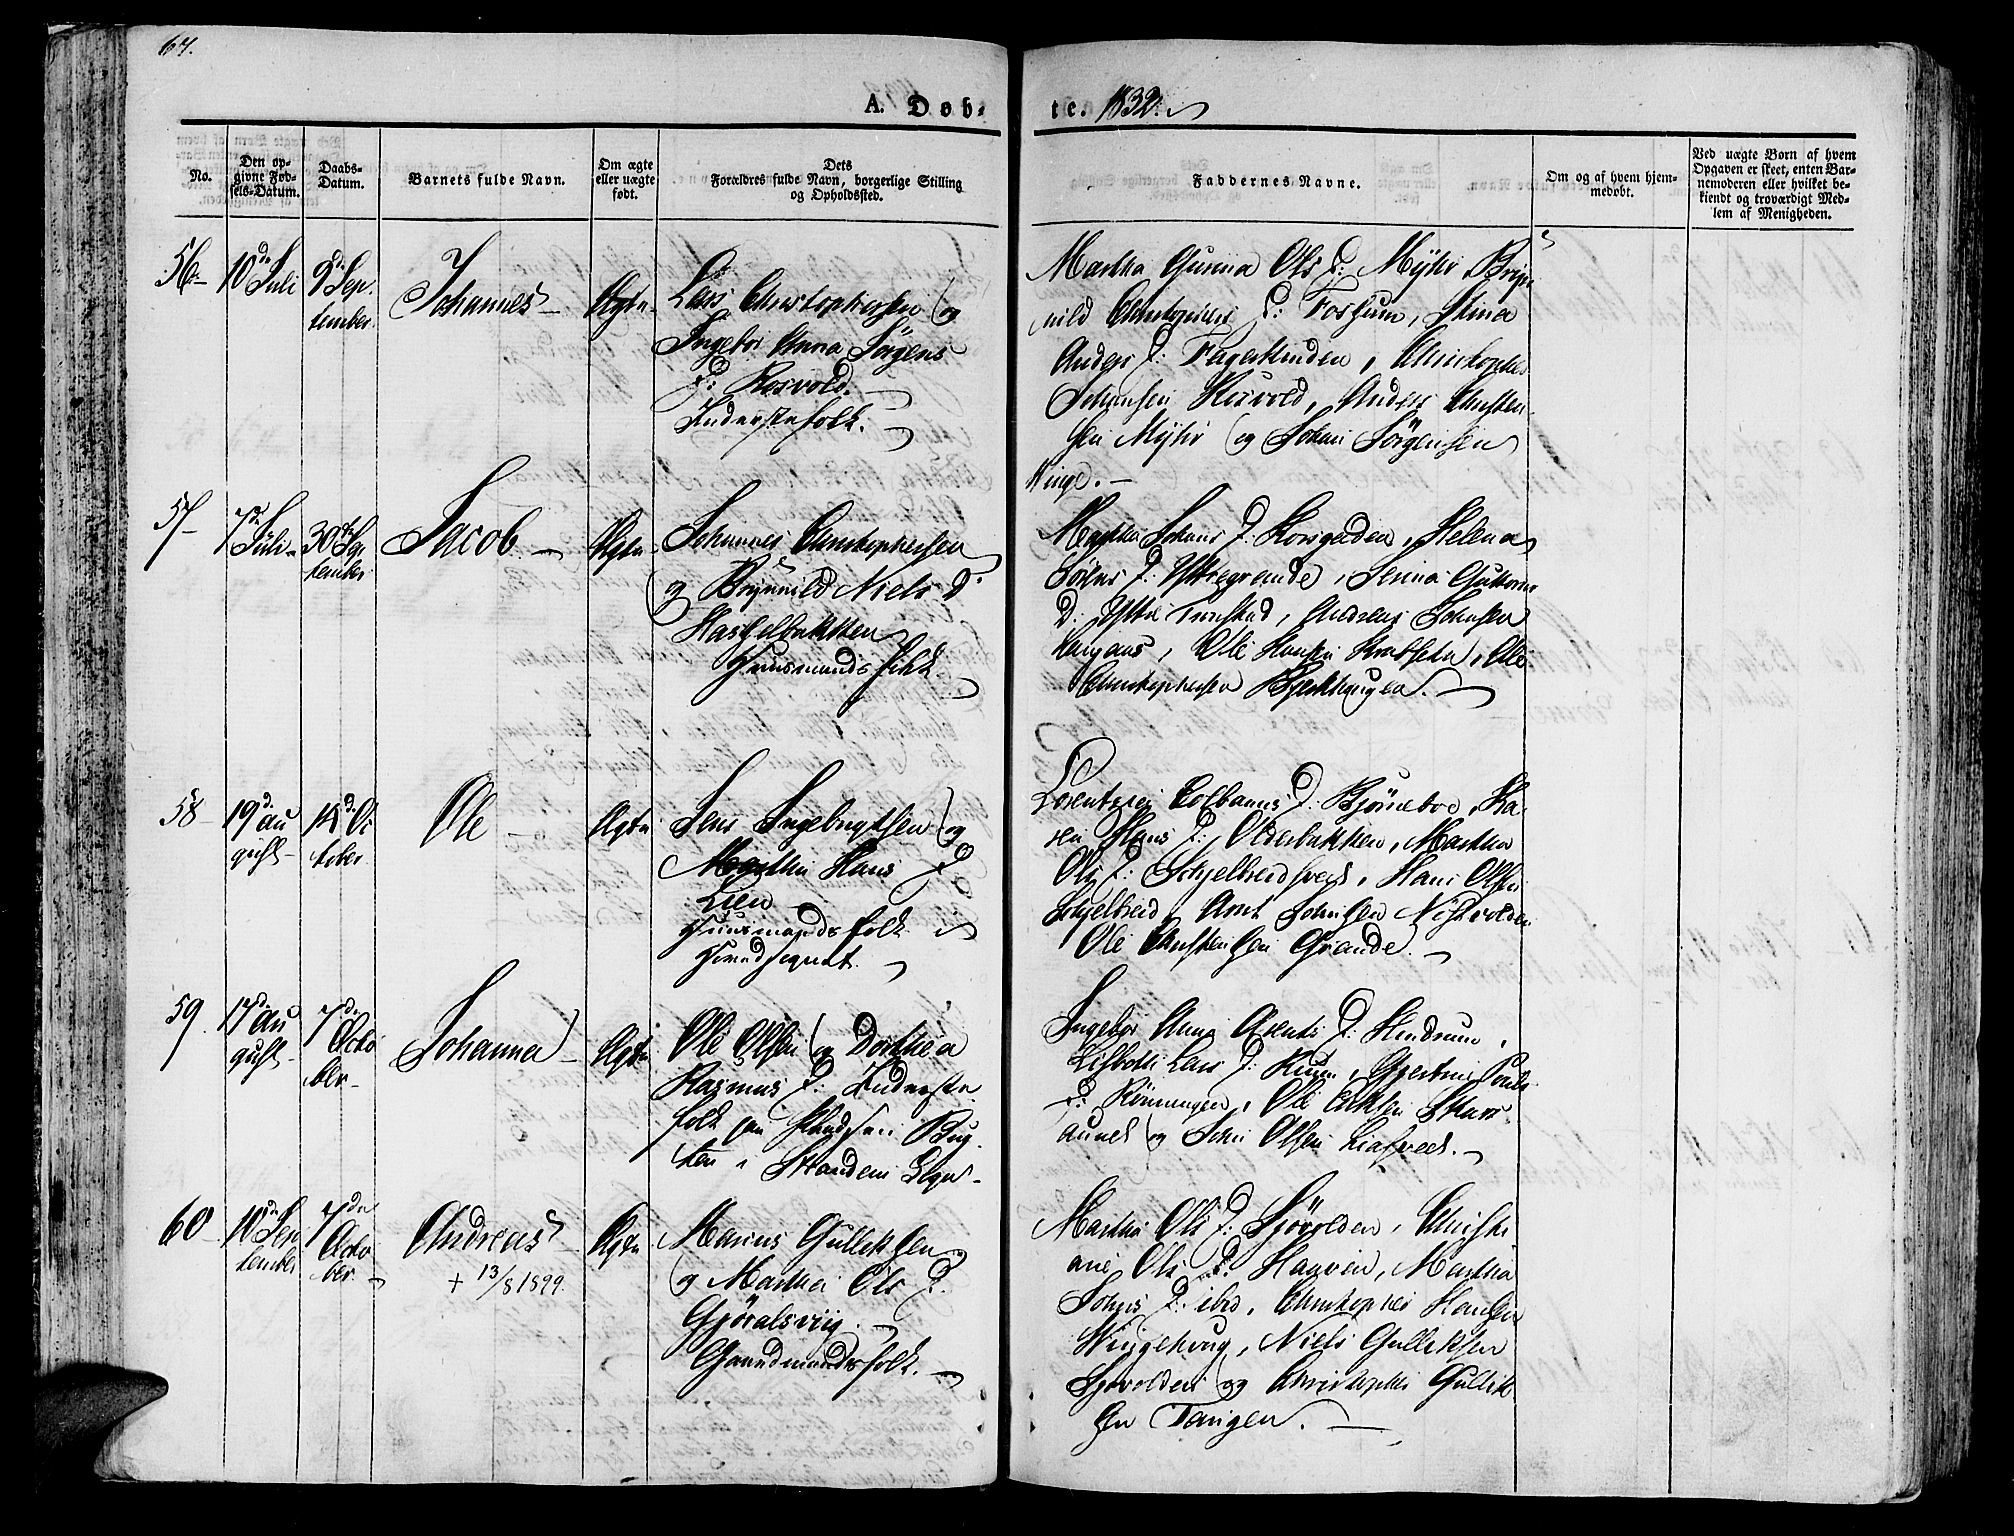 67.
A. Døb-
te. 1832.
No.
Den op-
givne Fød-
sels-Datum.
Daabs-
Datum.
Barnets fulde Navn.
Om ægte
eller uægte
født.
Dets
Forældres fulde Navn, borgerlige Stilling
og Opholdssted.
Faddernes Navne.
Om og af hvem hjem-
medøbt.
Ved uægte Børn af hvem
Opgaven er skeet, enten Bar-
nemoderen eller hvilket be-
kiendt og troværdigt Med-
lem af Menigheden.
56-
10de Juli
9de Sep-
tember.
Johannes
Ægte
Lars Christophersen og
Ingebor Anna Jørgens
D: Resvold.
Inderstefolk.
Martha Gunna Ols D: Myhr, Bryn-
nild D: Fossum, Stina
Anders D: Fagerlinden, Christopher
Johansen Resvold, Anders Christen-
sen Myhr og Johan Jørgensen
Winge.
57-
7de
Juli
30te Sep-
tember
Jacob
Ægte
Johannes Christophersen
og Brynnild Niels D:
Hasselbakken
Huusmandsfolk.
Johans D: Korsgaden, Helena
D: Yttregrande,
D: Ytter Tinstad, Andreas Johnsen
Ole Hansen Ole
Christophersen Bjerkhaugen.
58-
19d. Au
gust
14d. Oc
tober
Ole
Ægte
Jens Ingebrigtsen og
Martha Hans D:
Lien
Huusmandsfolk
D: Bjørneboe, Ka-
ren Hans D: Olderbakken, Martha
Ols D: Hans Olsen
Arnt Johnsen
Ole Christensen Grande.
59.
17d. Au
gust
7de
Octo
ber
Johanna
Ægte
Ole Olsen og Dorthea
Rasmus D: Inderste
folk paa Bug-
ten i Strandens
Ingebor Anna Arents D: Hindrum,
Lisbeth Lars D:
D: Rønningen, Ole
og John Olsen
60
10de Sep
tember
7de
Octo
ber
Andreas
+ 13/8 1899.
Ægte
Marius Gulliksen
og Martha Ols D:
Gjøralsviig.
Gaardmandsfolk.
Martha Ols D: Sjøvolden, Christi
ane Ols D: Haaven, Martha
Johns D: ibid, Christopher Hansen
Wingehoug, Niels Gulliksen
Sjøvolden og Christopher Gullik
sen Tangen.